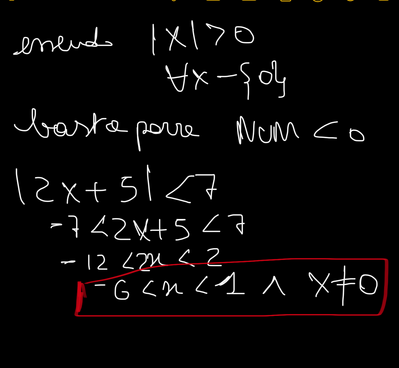 essendo |X|>0
∀x-{0}
basta porre NUM<0
|2x+5|<7
-7<2x+5<7
-12<2x<2
-6<x<1 ∧ x≠0